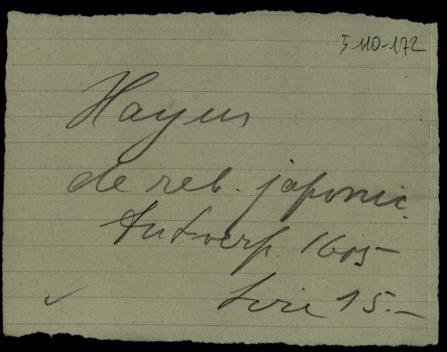 5 110-172
Hayus
de reb. japonic.
Antverp. 1605
Lire 15.-